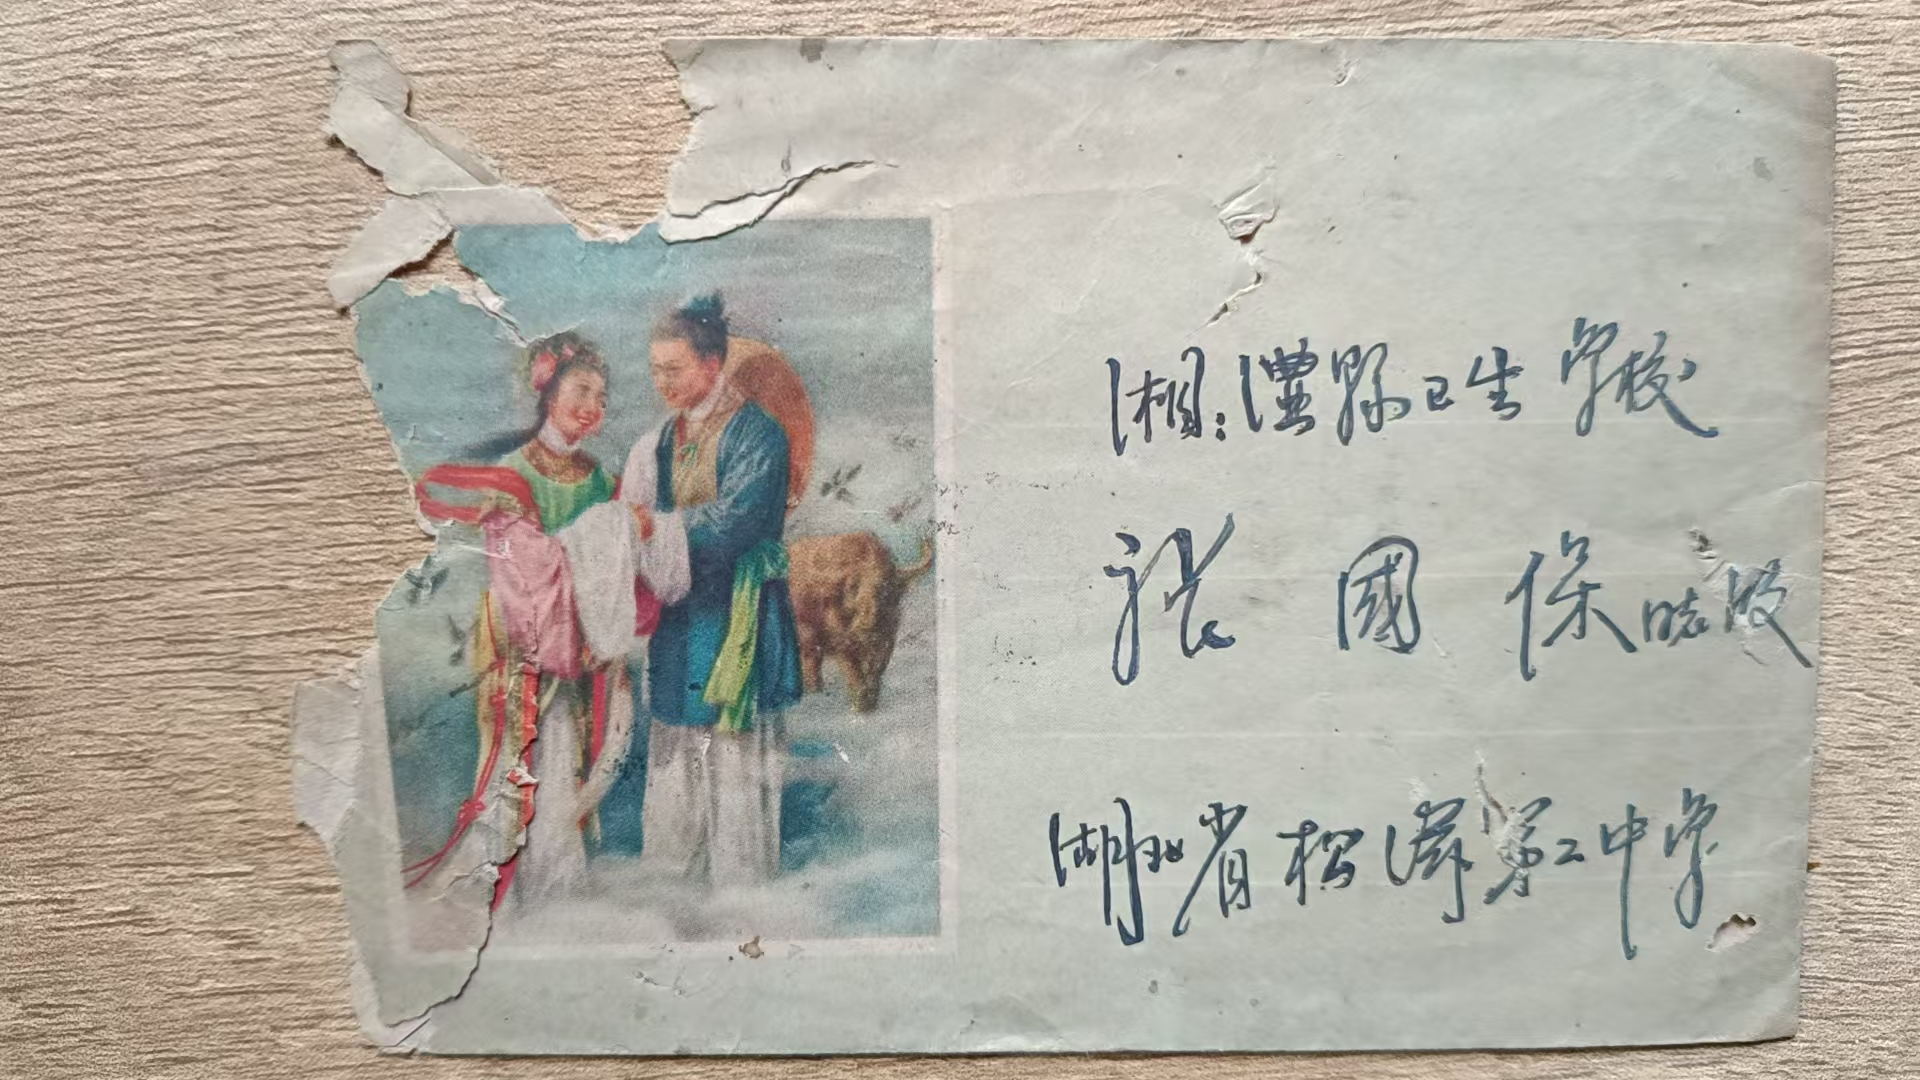 湘:澧縣卫生学校
張國保 收
湖北省松滋第二中学